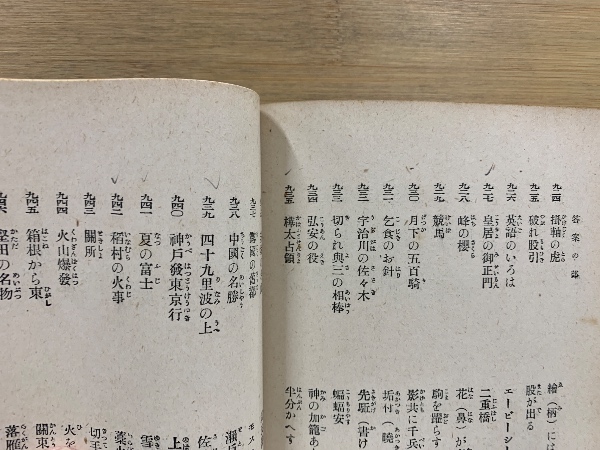 答案の部
九二四 掛軸の虎
九二五 破れ股引
九二六 英語のいろは
九二七 皇居の御正門
九二八 峰の櫻
九二九 競馬
九三〇 月下の五百騎
九三一 乞食のお針
九三二 宇治川の佐々木
九三三 切られ與三の相棒
九三四 弘安の役
九三五 樺太占領
繪(柄)には
股が出る
エービーシー
二重橋
花(鼻)が
駒を躍らす
影共に千兵
垢付(曉)
先駈(書け
蝙蝠安
神の加護あ
半分かへす
九三八 中國の名勝
九三九 四十九里波の上
九四〇 神戸發東京行
九四一 夏の富士
九四二 稻村の火事
九四三 關所
九四四 火山爆發
九四五 箱根から東
九四六 堅田の名物
瀬戸
佐
上
雪
藁火
切手
火を
關東
落雁